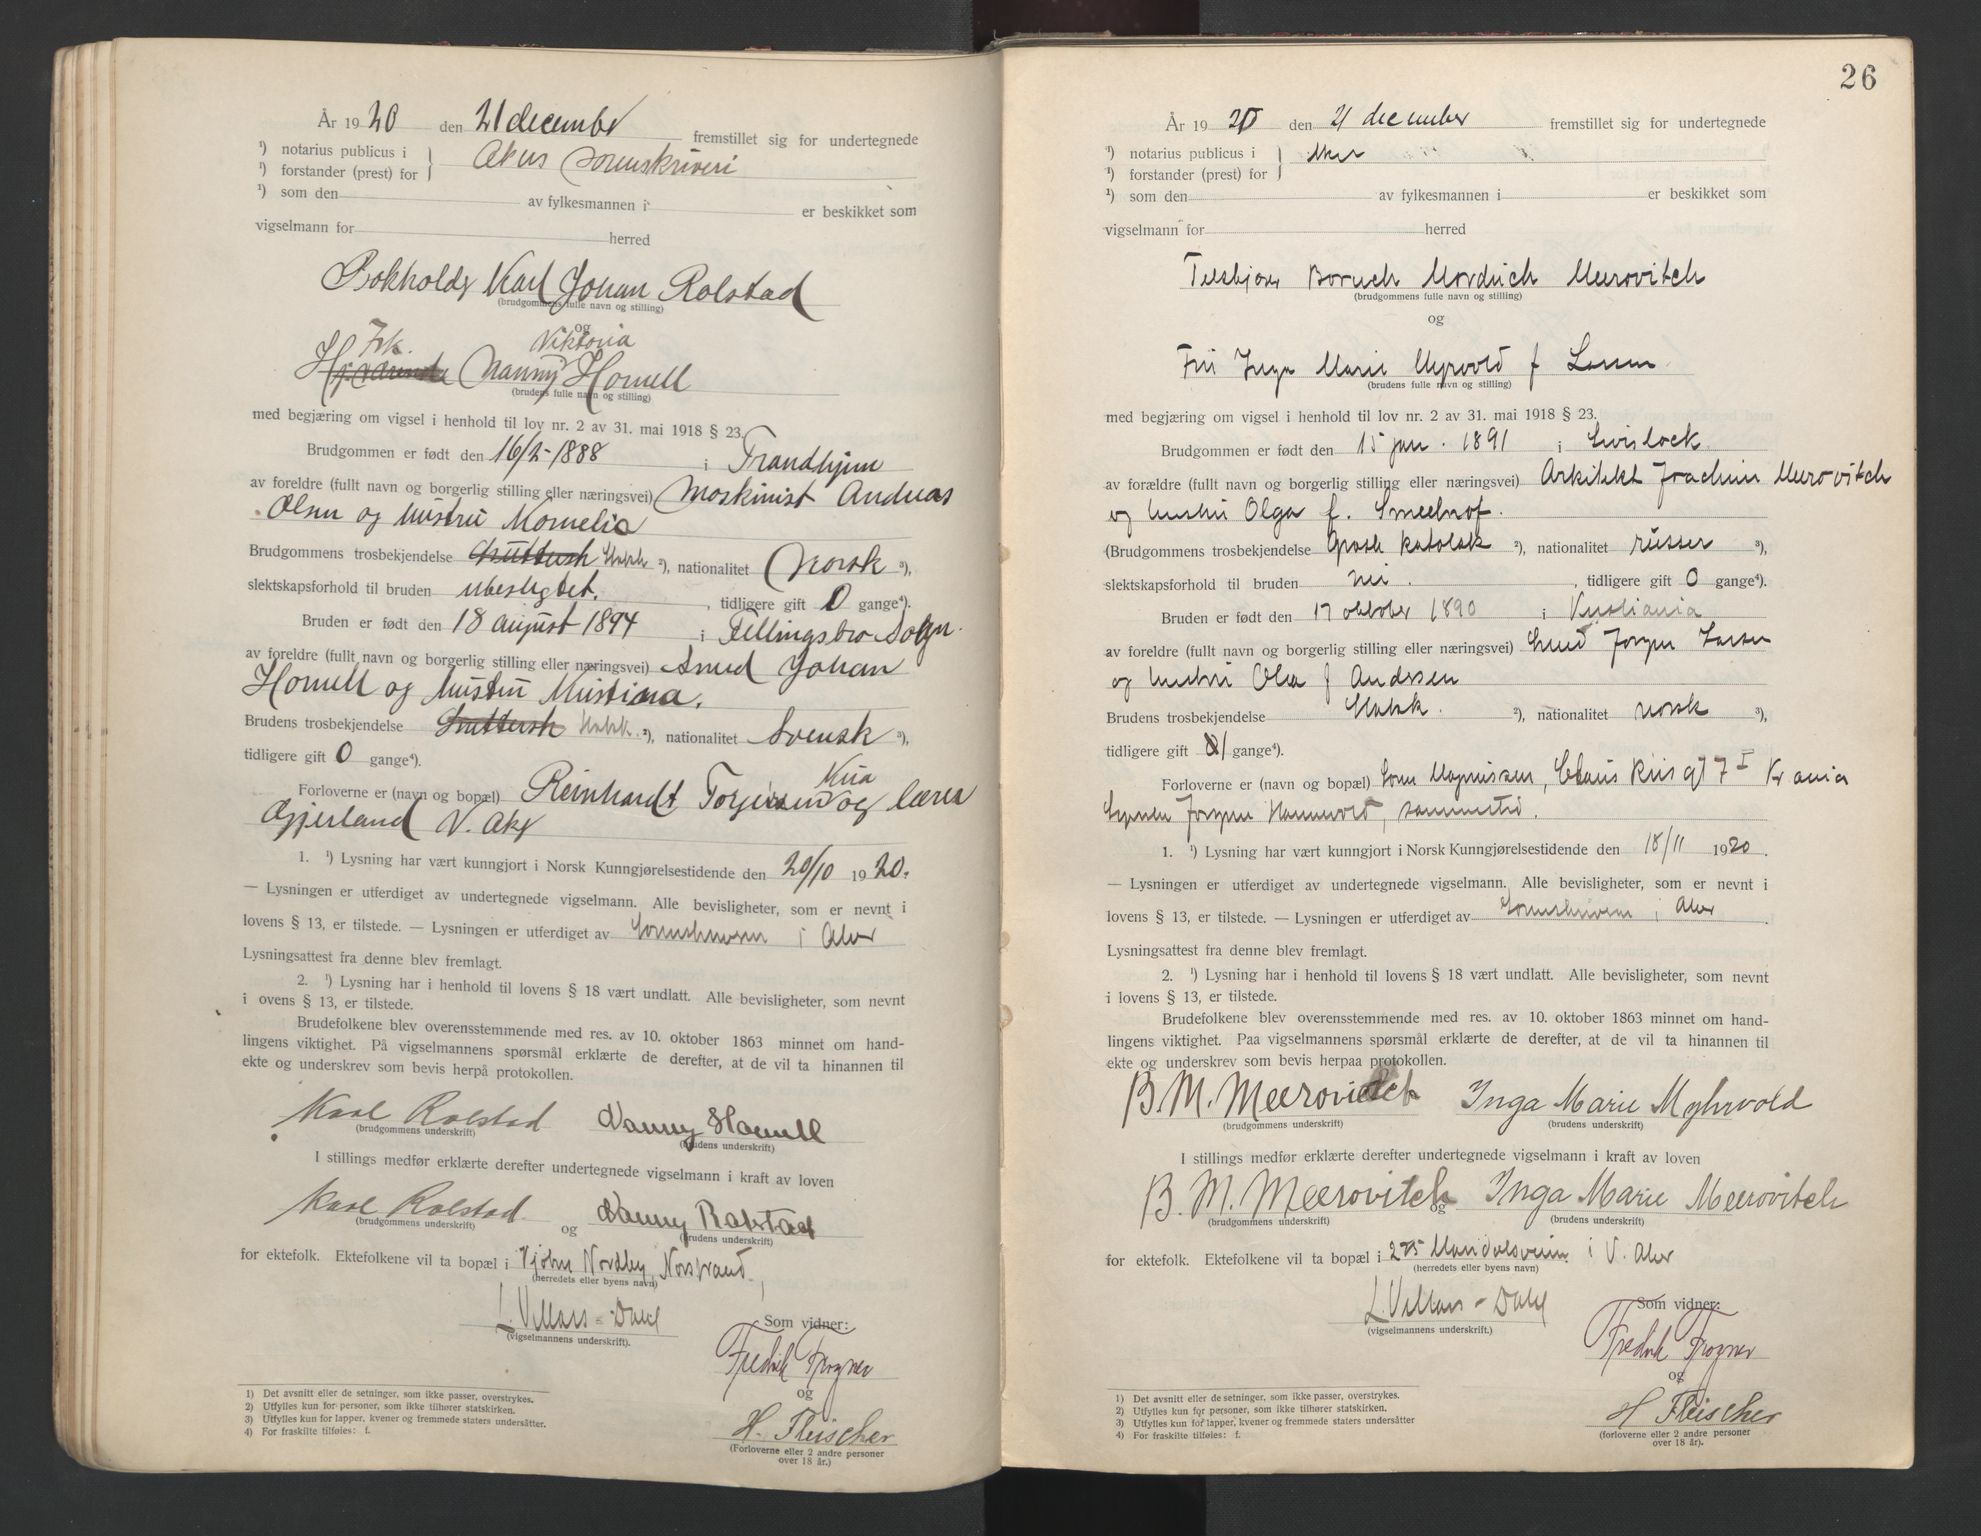 År 1920 den 21 december fremstillet sig for undertegnede
¹) notarius publicus i } Akers Sorenskriveri
¹) forstander (prest) for
¹) som den av fylkesmannen i er beskikket som
vigselmann for herred
Bokholder Karl Johan Rolstad
(brudgommens fulle navn og stilling)
og
Frk. Viktoria
Nanny Hornell
(brudens fulle navn og stilling)
med begjæring om vigsel i henhold til lov nr. 2 av 31. mai 1918 § 23.
Brudgommen er født den 16/2-1888 i Trondhjem
av foreldre (fullt navn og borgerlig stilling eller næringsvei) Maskinist Andreas
Olsen og hustru Kornelia
Brudgommens trosbekjendelse Luthersk Statsk ²), nationalitet Norsk ³),
slektskapsforhold til bruden ubeslegtet, tidligere gift 0 gange⁴).
Bruden er født den 18 august 1894 i Fellingsbro Sogn.
av foreldre (fullt navn og borgerlig stilling eller næringsvei) Smed Johan
Hornell og hustru Kristina.
Brudens trosbekjendelse Luthersk Statsk. ²), nationalitet Svensk ³),
tidligere gift 0 gange⁴).
Kria
Forloverne er (navn og bopæl) Reinhardt Torgersen og
Gjerland V. Aker
1. ¹) Lysning har vært kunngjort i Norsk Kunngjørelsestidende den 20/10 1920.
— Lysningen er utferdiget av undertegnede vigselmann. Alle bevisligheter, som er nevnt i
lovens § 13, er tilstede. — Lysningen er utferdiget av Sorenskriveren i Aker
Lysningsattest fra denne blev fremlagt.
2. ¹) Lysning har i henhold til lovens § 18 vært undlatt. Alle bevisligheter, som nevnt
i ovens § 13, er tilstede.
Brudefolkene blev overensstemmende med res. av 10. oktober 1863 minnet om hand-
lingens viktighet. På vigselmannens spørsmål erklærte de derefter, at de vil ta hinannen til
ekte og underskrev som bevis herpå protokollen.
Karl Rolstad Nanny Hornell
(brudgommens underskrift) (brudens underskrift)
I stillings medfør erklærte derefter undertegnede vigselmann i kraft av loven
Karl Rolstad og Nanny Rolstad
(brudgommens underskrift) (brudens underskrift)
for ektefolk. Ektefolkene vil ta bopæl i Nordby, Norstrand
(herredets eller byens navn)
L. Villars-Dahl
(vigselmannens underskrift).
Som vidner:
Fredrik Trogner
og
H. Fleischer
(Forloverne eller 2 andre personer
over 18 år.)
1) Det avsnitt eller de setninger, som ikke passer, overstrykes.
2) Utfylles kun for personer, som ikke tilhører statskirken.
3) Utfylles kun for lapper, kvener og fremmede staters undersåtter.
4) For fraskilte tilføies: f.
26
År 1920 den 21 december fremstillet sig for undertegnede
¹) notarius publicus i } Aker
¹) forstander (prest) for
¹) som den av fylkesmannen i er beskikket som
vigselmann for herred
Boruch Morduch Meerovitch
(brudgommens fulle navn og stilling)
og
Fru Inga Marie Myrvold f Larsen
(brudens fulle navn og stilling)
med begjæring om vigsel i henhold til lov nr. 2 av 31. mai 1918 § 23.
Brudgommen er født den 15 jan. 1891 i Swislock
av forældre (fullt navn og borgerlig stilling eller næringsvei) Arkitekt Joachim Meerovitch
og hustru Olga f. Smeehof.
(Brudgommens trosbekjendelse Græsk katolsk ²), nationalitet russer ³),
slektskapsforhold til bruden nei. , tidligere gift 0 gange⁴).
Bruden er født den 17 oktober 1890 i Kristiania
av foreldre (fullt navn og borgerlig stilling eller næringsvei) Smed Jørgen Larsen
og hustru Olea f Andersen
Brudens trosbekjendelse Statsk. ²), nationalitet norsk ³),
tidligere gift 1 gange⁴).
Forloverne er (navn og bopæl) Magnussen, Claus Riis gt 7 I Kr ania
Jørgen Hannevold, sammested.
1. ¹) Lysning har vært kunngjort i Norsk Kunngjørelsestidende den 18/11 1920.
— Lysningen er utferdiget av undertegnede vigselmann. Alle bevisligheter, som er nevnt i
lovens § 13, er tilstede. — Lysningen er utferdiget av Sorenskriveren i Aker
Lysningsattest fra denne blev fremlagt.
2. ¹) Lysning har i henhold til lovens § 18 vært undlatt. Alle bevisligheter, som nevnt
i lovens § 13, er tilstede.
Brudefolkene blev overensstemmende med res. av 10. oktober 1863 minnet om hand-
lingens viktighet. Paa vigselmannens spørsmål erklærte de derefter, at de vil ta hinannen til
ekte og underskrev som bevis herpaa protokollen.
B. M. Meerovitch Inga Marie Myhrvold
(brudgommens underskrift) (brudens underskrift)
I stillings medfør erklærte derefter undertegnede vigselmann i kraft av loven
B. M. Meerovitch og Inga Marie Meerovitch
(brudgommens underskrift) (brudens underskrift)
for ektefolk. Ektefolkene vil ta bopæl i i V. Aker
(herredets eller byens navn)
L. Villars-Dahl
(vigselmannens underskrift.)
Som vidner:
Fredrik Trogner
og
H Fleischer
(forloverne eller 2 andre personer
over 18 år).
1) Det avsnitt eller de setninger, som ikke passer, overstrykes.
2) Utfylles kun for personer, som ikke tilhører statskirken.
3) Utfylles kun for lapper, kvener og fremmede staters undersåtter
4) For fraskilte tilføies: f.